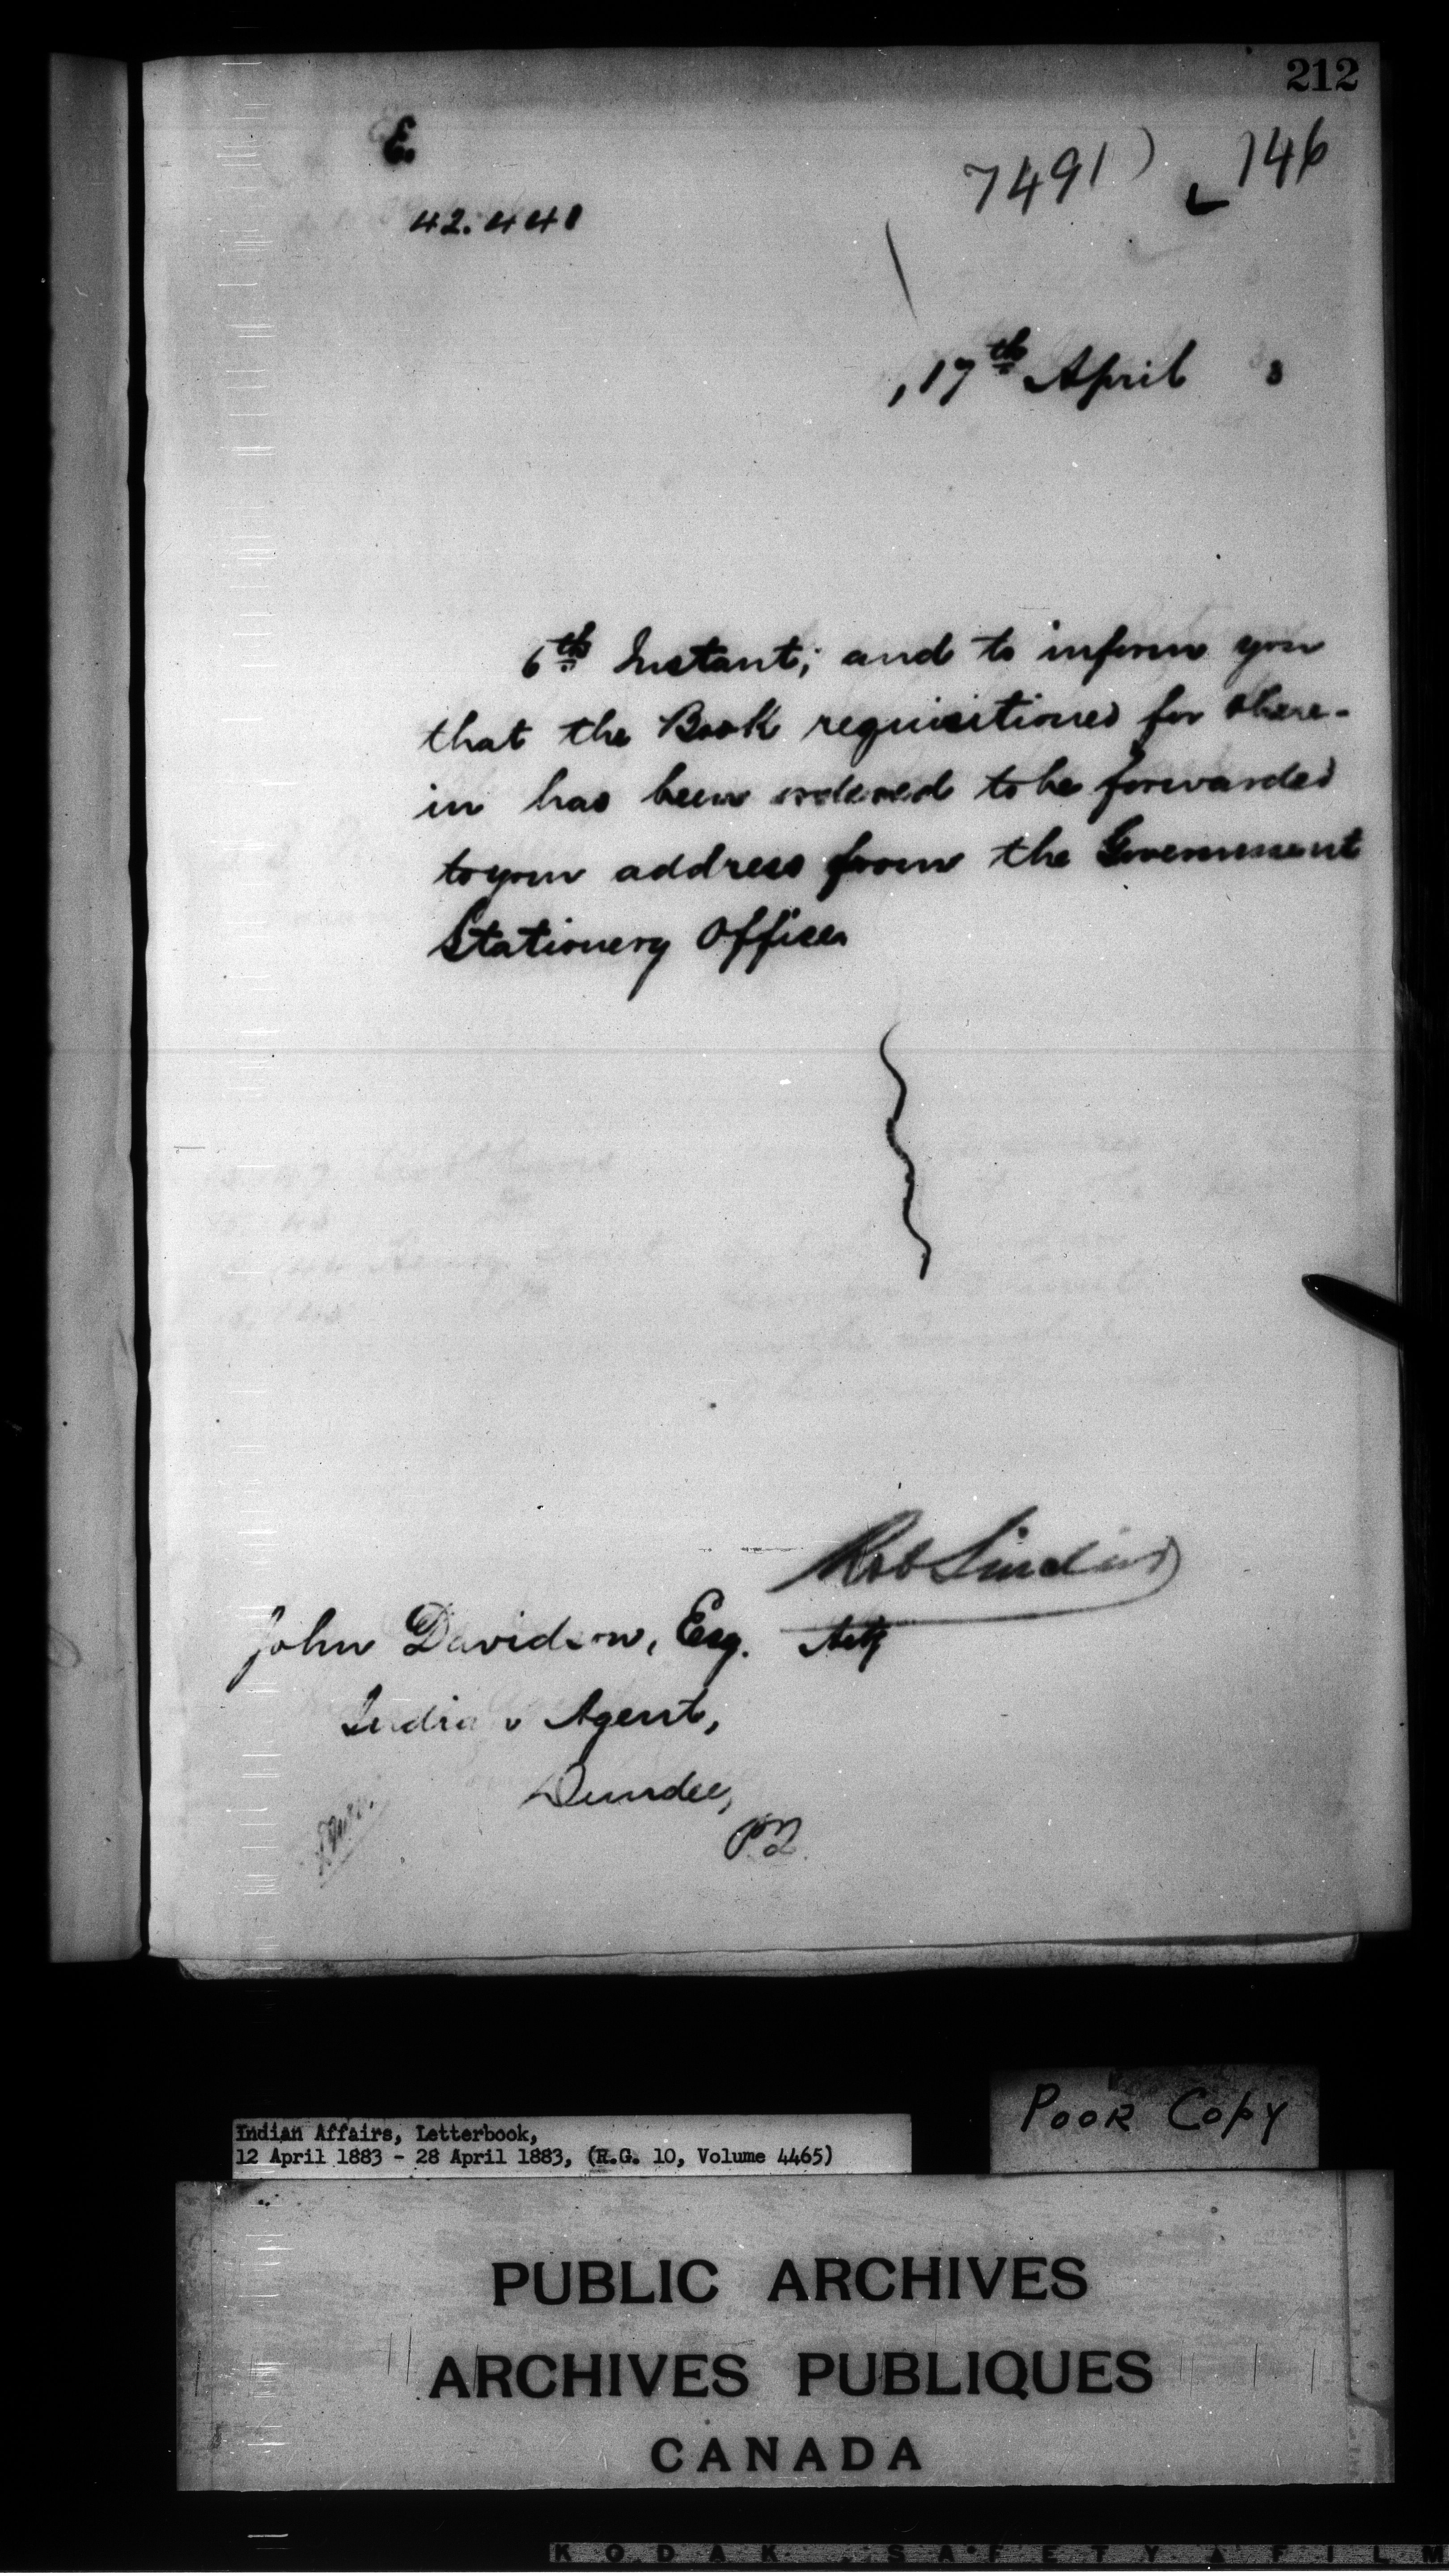 212
E.
7491) 146
42.441
, 17th April 3
6th Instant; and to inform you
that the Book requisitioned for there-
in has been ordered to be forwarded
to your address from the Government
Stationery Office.
Rob Sinclair
John Davidson, Esq.
Indian Agent,
Dundee,
P.Q.
Poor Copy
Indian Affairs, Letterbook,
12 April 1883 - 28 April 1883, (R.G. 10, Volume 4465)
PUBLIC ARCHIVES
ARCHIVES PUBLIQUES
CANADA
KODAK SAFETY FILM